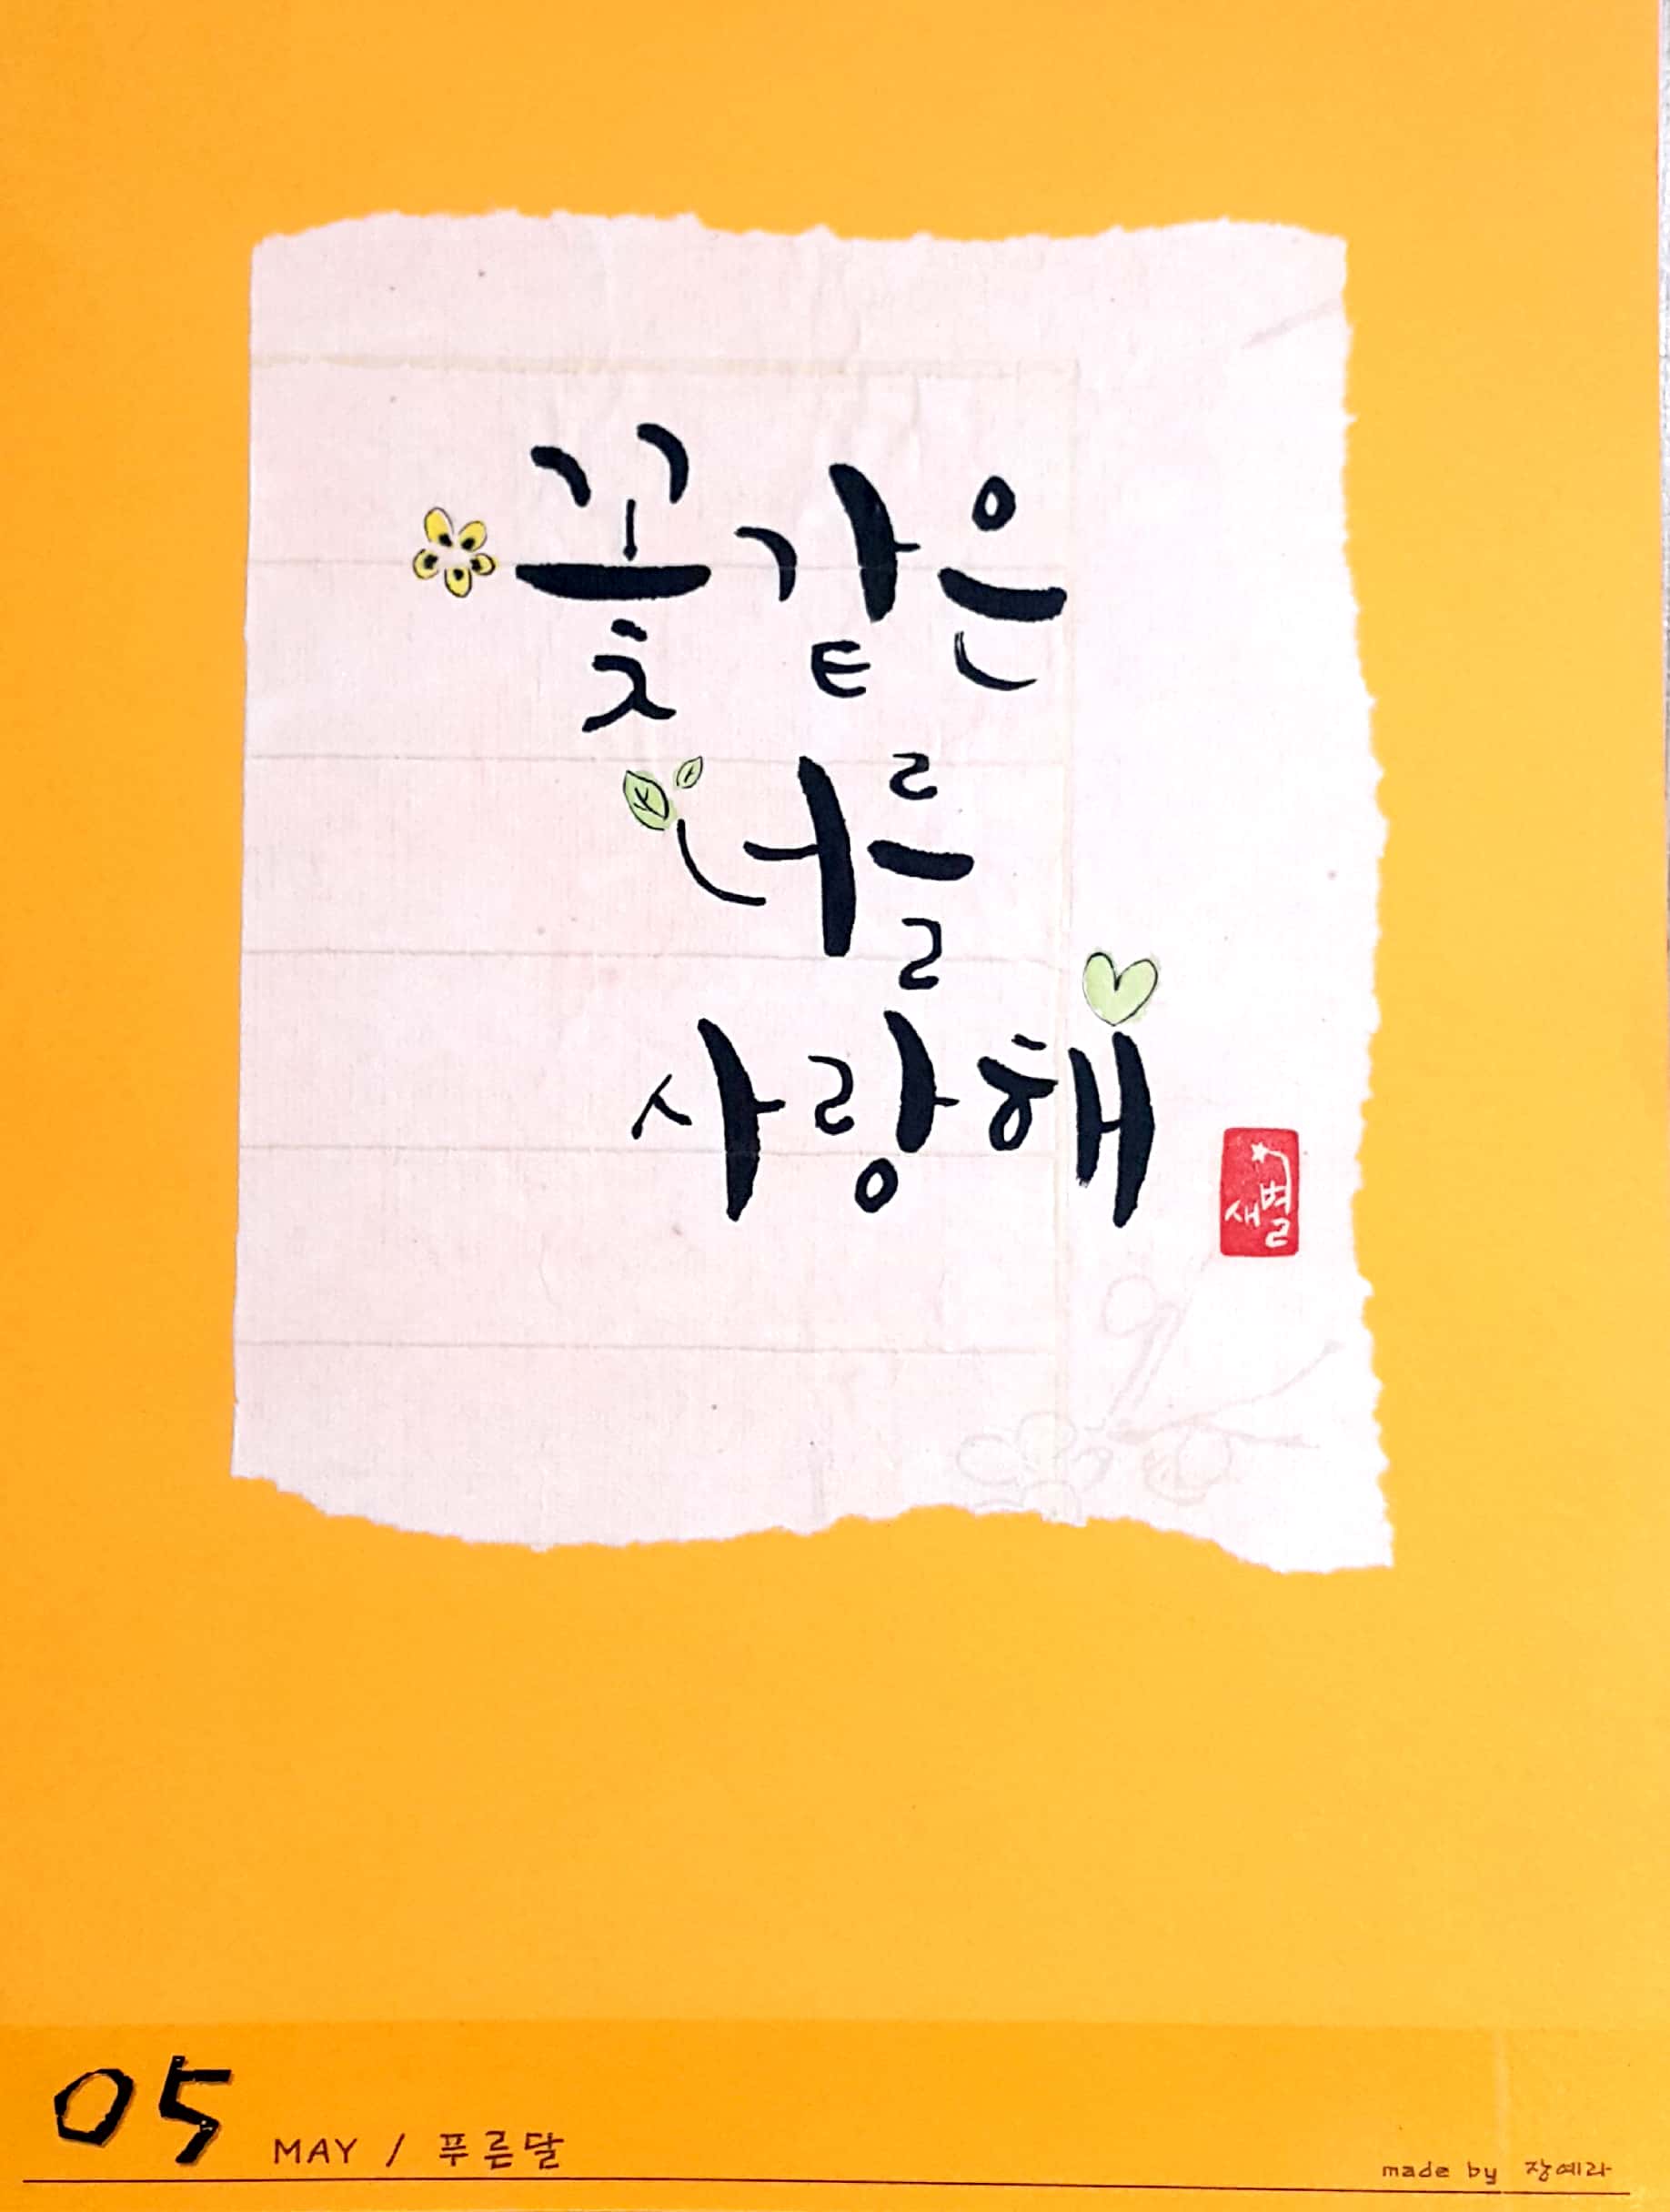 꽃같은
너를
사랑해
새별
05 MAY / 푸른달
made by 장예라